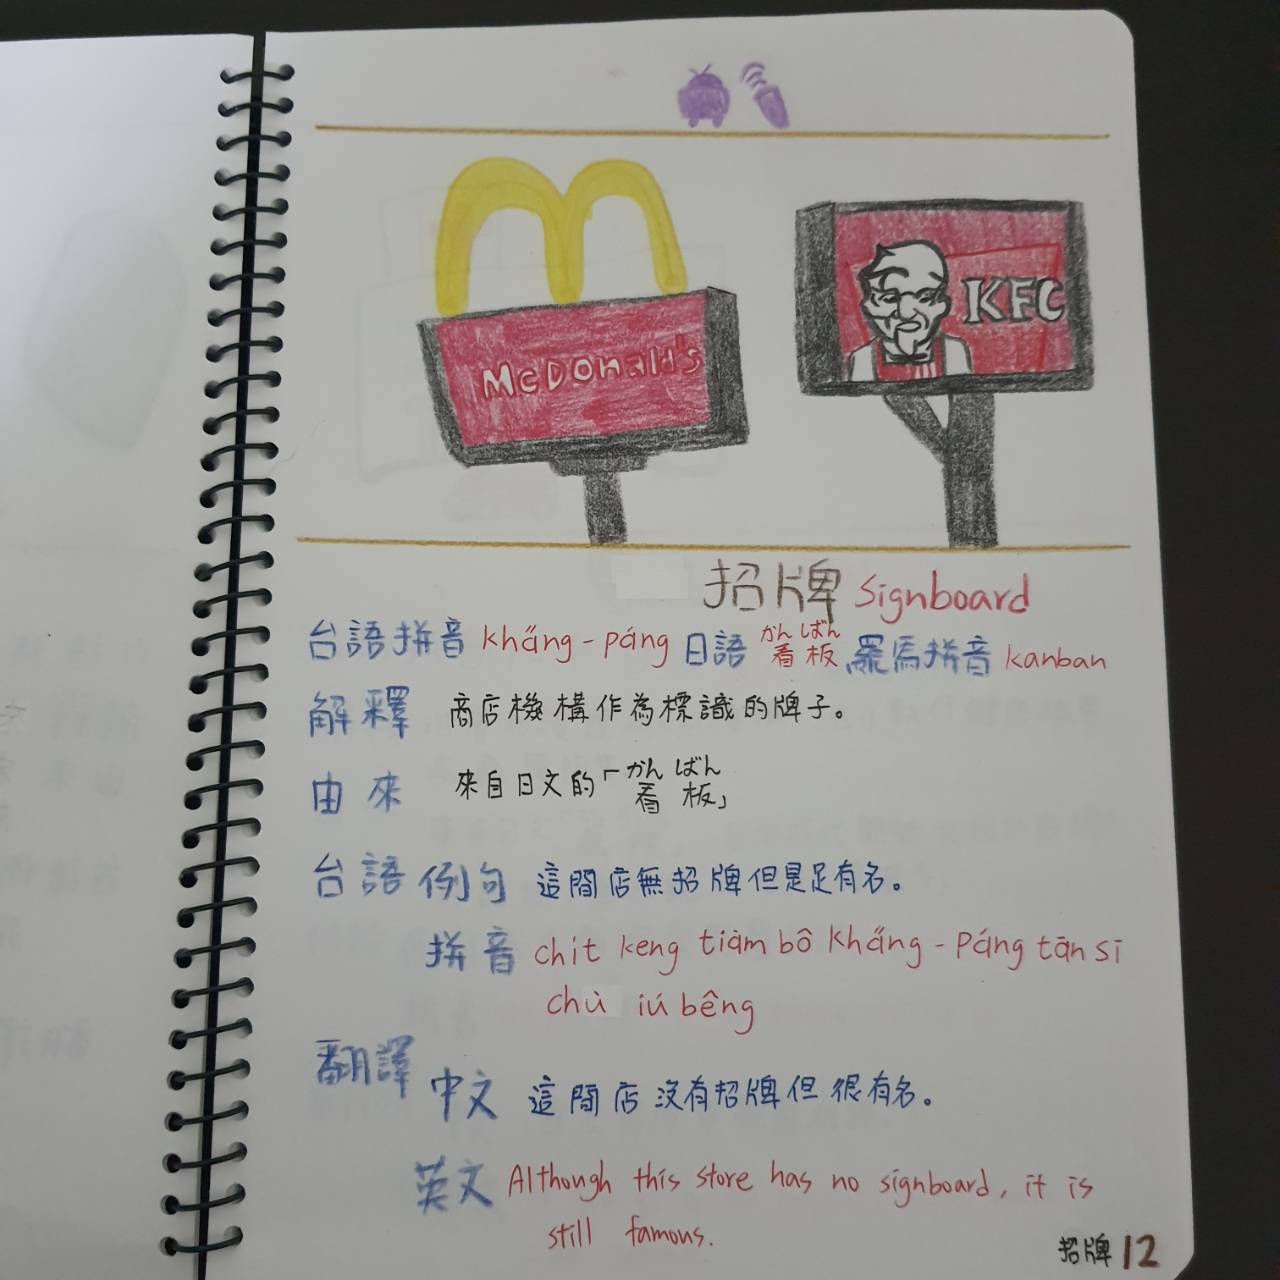 McDonald's
KFC
招牌 signboard
台語拼音 kha̋ng-páng 日語 看板 かんばん 羅馬拼音 kanban
解釋 商店機構作為標識的牌子。
由來 來自日文的「看板 かんばん」
台語例句 這間店無招牌但是足有名。
拼音 chit keng tiàm bô kha̋ng-páng tān sī
chù iú bêng
翻譯 中文 這間店沒有招牌但很有名。
英文 Although this store has no signboard, it is
still famous.
招牌 12